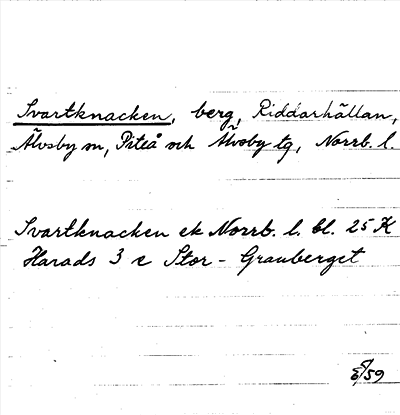 Svartknacken, berg, Riddarhällan,
Älvsby sn, Piteå och Älvsby tg, Norrb. l.
Svartknacken ek Norrb. l. bl. 25 K
Harads 3 c Stor-Granberget
/59